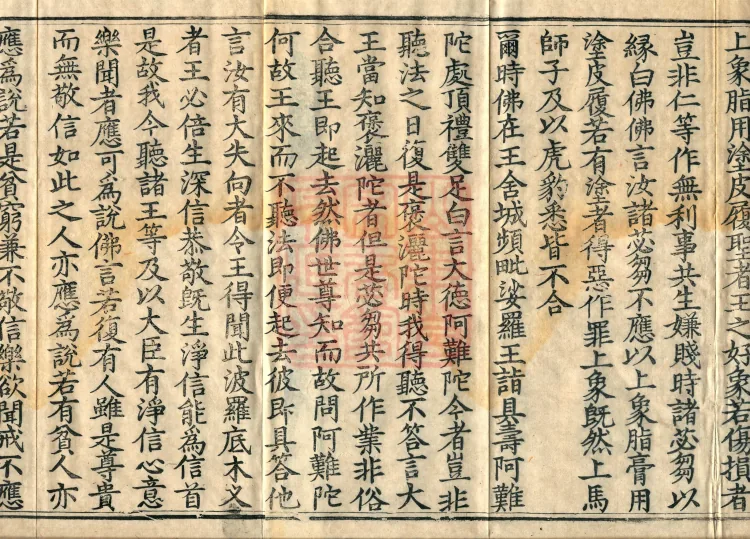 上象脂用塗皮履聖者王之好象若傷損者
豈非仁等作無利事共生嫌賤時諸苾芻以
緣白佛佛言汝諸苾芻不應以上象脂膏用
塗皮履若有塗者得惡作罪上象既然上馬
師子及以虎豹悉皆不合
爾時佛在王舍城頻毗娑羅王詣具壽阿難
陀處頂禮雙足白言大德阿難陀今者豈非
聽法之日復是褒灑陀時我得聽不答言大
王當知褒灑陀者但是苾芻共所作業非俗
合聽王即起去然佛世尊知而故問阿難陀
何故王來而不聽法即便起去彼即具答他
言汝有大失向者令王得聞此波羅底木叉
者王必倍生深信恭敬既生淨信能為信首
是故我今聽諸王等及以大臣有淨信心意
樂聞者應可為說佛言若復有人雖是尊貴
而無敬信如此之人亦應為說若有貧人亦
應為說若是貧窮兼不敬信樂欲聞戒不應